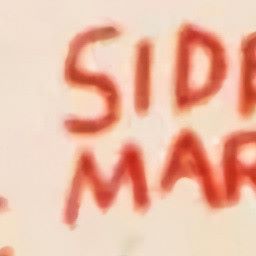 SIDE
MAR